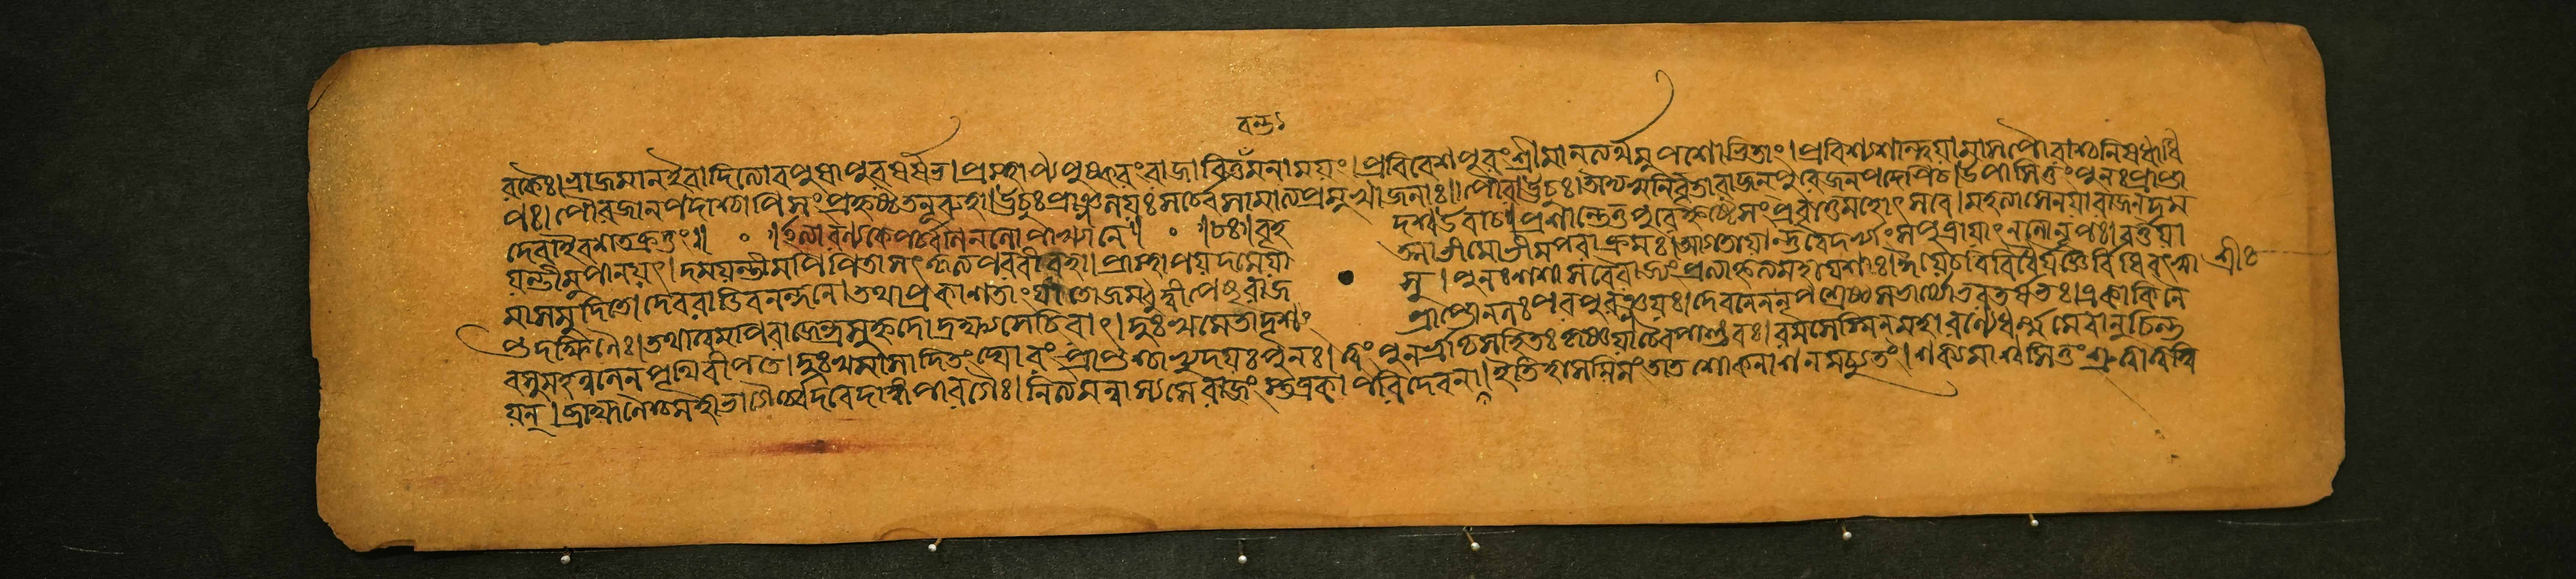 বন্ত১
রকৈঃ।ভ্রাজমানইবাদিত্যোবপুষাপুরুষর্ষভ।প্রস্থাপ্যপুষ্করংরাজাবিত্তমনাময়ং।প্রবিবেশপুরংশ্রীমানত্যর্থমুপশোভিতাং।প্রবিশ্যশান্ত্বয়ামাসপৌরাংশ্চনিষধাধি
পঃ।পৌরজানপদাশ্চাপিসংপ্রহৃষ্টতনূরুহাঃ।ঊচুঃপ্রাঞ্জলয়ঃসর্ব্বেসামাত্যপ্রমুখাজনাঃ।।পৌরাঊচুঃ।অদ্যস্মনির্বৃতারাজনপুরেজনপদেপিচ।উপাসিতুংপুনঃপ্রাপ্তা
দেবাইবশতক্রতুং॥ ॰ ॥ইত্যারণ্যকেপর্ব্বণিনলোপাখ্যানে॥ ॰ ॥চঃ।বৃহ দশ্বউবাচ।প্রশান্তেতুপুরেহৃষ্টেসংপ্রবৃত্তেমহোৎসবে।মহত্যাসেনয়ারাজাদম
য়ন্তীমুপানয়ৎ।দময়ন্তীমপিপিতাসৎকৃত্যপরবীরহা।প্রাস্থাপয়দমেয়া ত্মাভীমোভীমপরাক্রমঃ।আগতায়ান্তুবৈদর্ভ্যাংসপুত্রায়াংনলোনৃপঃ।বর্ত্তয়া
মাসমুদিতোদেবরাডিবনন্দনে।তথাপ্রকাশতাংযাতোজম্বুদ্বীপেথরাজ সু।পুনঃশশাসবৈরাজ্যংপ্রত্যাহৃত্যমহাযশাঃ।ঈজেচবিবিধৈর্যজ্ঞৈর্বিধিবৎস্বা শ্রীঃ
প্তদক্ষিণৈঃ।তথাত্বমপিরাজেন্দ্রসসুহৃদ্দ্রক্ষ্যসেচিরাৎ।দুঃখমেতাদৃশং প্রাপ্তোনলঃপরপুরঞ্জয়ঃ।দেবনেননৃপশ্রেষ্ঠসভার্য্যোভরতর্ষভঃ।একাকিনৈ
বসুমহন্নলেনপৃথিবীপতে।দুঃখমাসাদিতংঘোরংপ্রাপ্তশ্চাভ্যুদয়ঃপুনঃ।ত্বংপুনর্ভ্রাতৃসহিতঃকৃষ্ণয়াচৈবপাণ্ডবঃ।রমসেস্মিনমহারণ্যেধর্ম্মমেবানুচিন্ত
য়ন্।ব্রাহ্মণৈশ্চমহাভাগৈর্বেদবেদাঙ্গপারগৈঃ।নিত্যমন্বাস্যসেরাজংস্তত্রকাপরিদেবনা।ইতিহাসমিমংতাতশোকনাশনমচ্যুতং।শক্যমাশ্বাসিতুংশ্রুত্বাত্বদ্বি